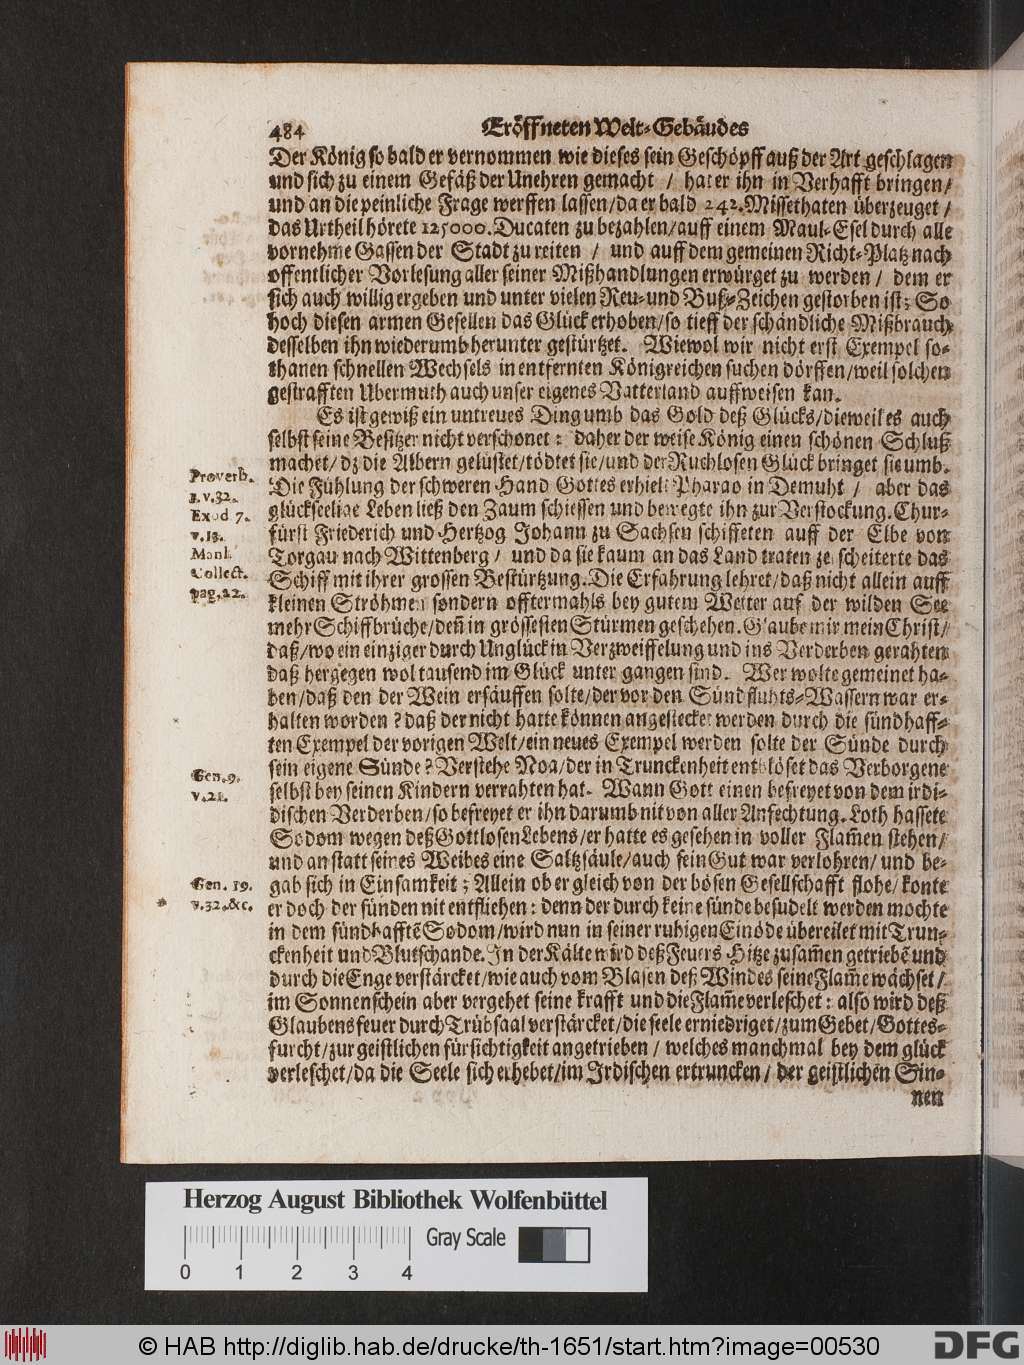 484 Eröffneten Welt-Gebäudes
Der König so bald er vernommen wie dieses sein Geschöpff auß der Art geschlagen
und sich zu einem Gefäß der Unehren gemacht / hat er ihn in Verhafft bringen/
und an die peinliche Frage werffen lassen/da er bald 242. Missethaten überzeuget /
das Urtheil hörete 125000. Ducaten zu bezahlen/auff einem Maul-Esel durch alle
vornehme Gassen der Stadt zu reiten / und auff dem gemeinen Richt-Platz nach
offentlicher Vorlesung aller seiner Mißhandlungen erwürget zu werden / dem er
sich auch willig ergeben und unter vielen Reu- und Buß-Zeichen gestorben ist; So
hoch diesen armen Gesellen das Glück erhoben/so tieff der schändliche Mißbrauch
desselben ihn wiederumb herunter gestürtzet. Wiewol wir nicht erst Exempel so-
thanen schnellen Wechsels in entfernten Königreichen suchen dörffen/weil solchen
gestrafften Ubermuth auch unser eigenes Vatterland auffweisen kan.
Es ist gewiß ein untreues Ding umb das Gold deß Glücks/dieweil es auch
selbst seine Besitzer nicht verschonet: daher der weise König einen schönen Schluß
machet/dz die Albern gelüstet/tödtet sie/und der Ruchlosen Glück bringet sie umb.
Proverb.
1. v. 32.
Die Fühlung der schweren Hand Gottes erhielt Pharao in Demuht / aber das
glückseelige Leben ließ den Zaum schiessen und bewegte ihn zur Verstockung. Chur-
Exod 7.
v. 13.
fürst Friederich und Hertzog Johann zu Sachsen schiffeten auff der Elbe von
Torgau nach Wittenberg / und da sie kaum an das Land traten zerscheiterte das
Manl.
Collect.
pag. 22.
Schiff mit ihrer grossen Bestürtzung. Die Erfahrung lehret/daß nicht allein auff
kleinen Ströhmen sondern offtermahls bey gutem Wetter auf der wilden See
mehr Schiffbrüche/den̄ in grössesten Stürmen geschehen. Glaube mir mein Christ/
daß/wo ein einziger durch Unglück in Verzweiffelung und ins Verderben gerahten
daß hergegen wol tausend im Glück unter gangen sind. Wer wolte gemeinet ha-
ben/daß den der Wein ersäuffen solte/der vor den Sündfluhts-Wassern war er-
halten worden? daß der nicht hatte können angestecket werden durch die sündhaff-
ten Exempel der vorigen Welt/ein neues Exempel werden solte der Sünde durch
sein eigene Sünde? Verstehe Noa/der in Trunckenheit entblöset das Verborgene
Gen. 9.
v. 21.
selbst bey seinen Kindern verrahten hat. Wann Gott einen befreyet von dem irdi-
dischen Verderben/so befreyet er ihn darumb nit von aller Anfechtung. Loth hassete
Sodom wegen deß Gottlosen Lebens/er hatte es gesehen in voller Flam̄en stehen/
und an statt seines Weibes eine Saltzsäule/auch sein Gut war verlohren/ und be-
gab sich in Einsamkeit; Allein ob er gleich von der bösen Gesellschafft flohe/konte
Gen. 19.
v. 32. &c.
er doch der sünden nit entfliehen: denn der durch keine sünde besudelt werden mochte
in dem sündhafftē Sodom/wird nun in seiner ruhigen Einöde übereilet mit Trun-
ckenheit und Blutschande. In der Kälte wird deß Feuers Hitze zusam̄en getriebē und
durch die Enge verstärcket/wie auch vom Blasen deß Windes seine Flam̄e wächset/
im Sonnenschein aber vergehet seine krafft und die Flam̄e verleschet: also wird deß
Glaubens feuer durch Trübsaal verstärcket/die seele erniedriget/zum Gebet/Gottes-
furcht/zur geistlichen fürsichtigkeit angetrieben / welches manchmal bey dem glück
verleschet/da die Seele sich erhebet/im Irdischen ertruncken/ der geistlichen Sin-
nen
Herzog August Bibliothek Wolfenbüttel
Gray Scale
0 1 2 3 4
© HAB http://diglib.hab.de/drucke/th-1651/start.htm?image=00530
DFG